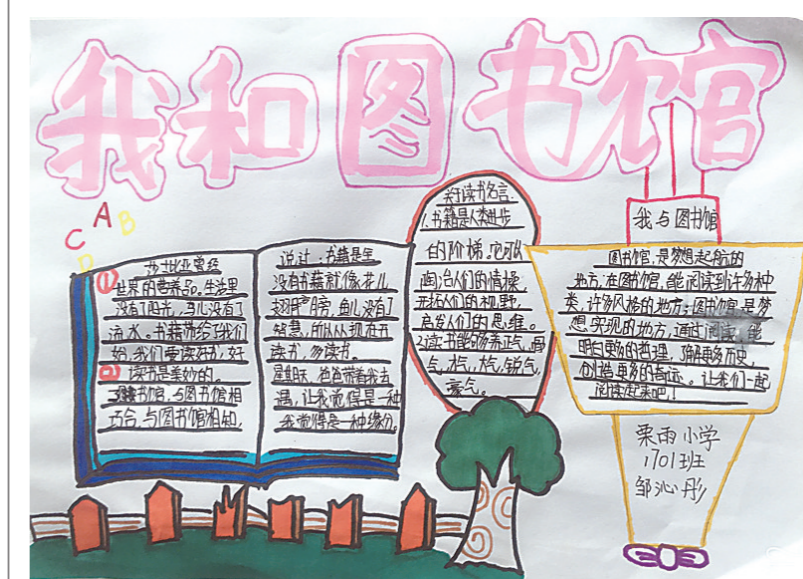 我和图书馆
A
B
C
D
莎士比亚曾经
说过:书籍是全
①
世界的营养品。生活里
没有书籍就像花儿
没有了阳光,鸟儿没有了
翅膀,鱼儿没有了
流水。书籍带给了我们
智慧,所以从现在开
始,我们要读好书,好
读书,多读书。
②
读书是美妙的。
星期天,爸爸带着我去
图书馆,与图书馆相
遇,让我觉得是一种
巧合,与图书馆相知,
我觉得是一种缘分。
关于读书名言.
1.书籍是人类进步
的阶梯。它可以
陶冶人们的情操,
开拓人们的视野,
启发人们的思维。
2.读书能够养正气,骨
气,才气,大气,锐气,
豪气。
我与图书馆
图书馆,是梦想起航的
地方,在图书馆,能阅读到许多种
类,许多风格的地方;图书馆是梦
想实现的地方,通过阅读,能
明白更多的哲理,了解更多历史,
创造更多的奇迹。让我们一起
阅读起来吧!
栗雨小学
1701班
邹沁彤